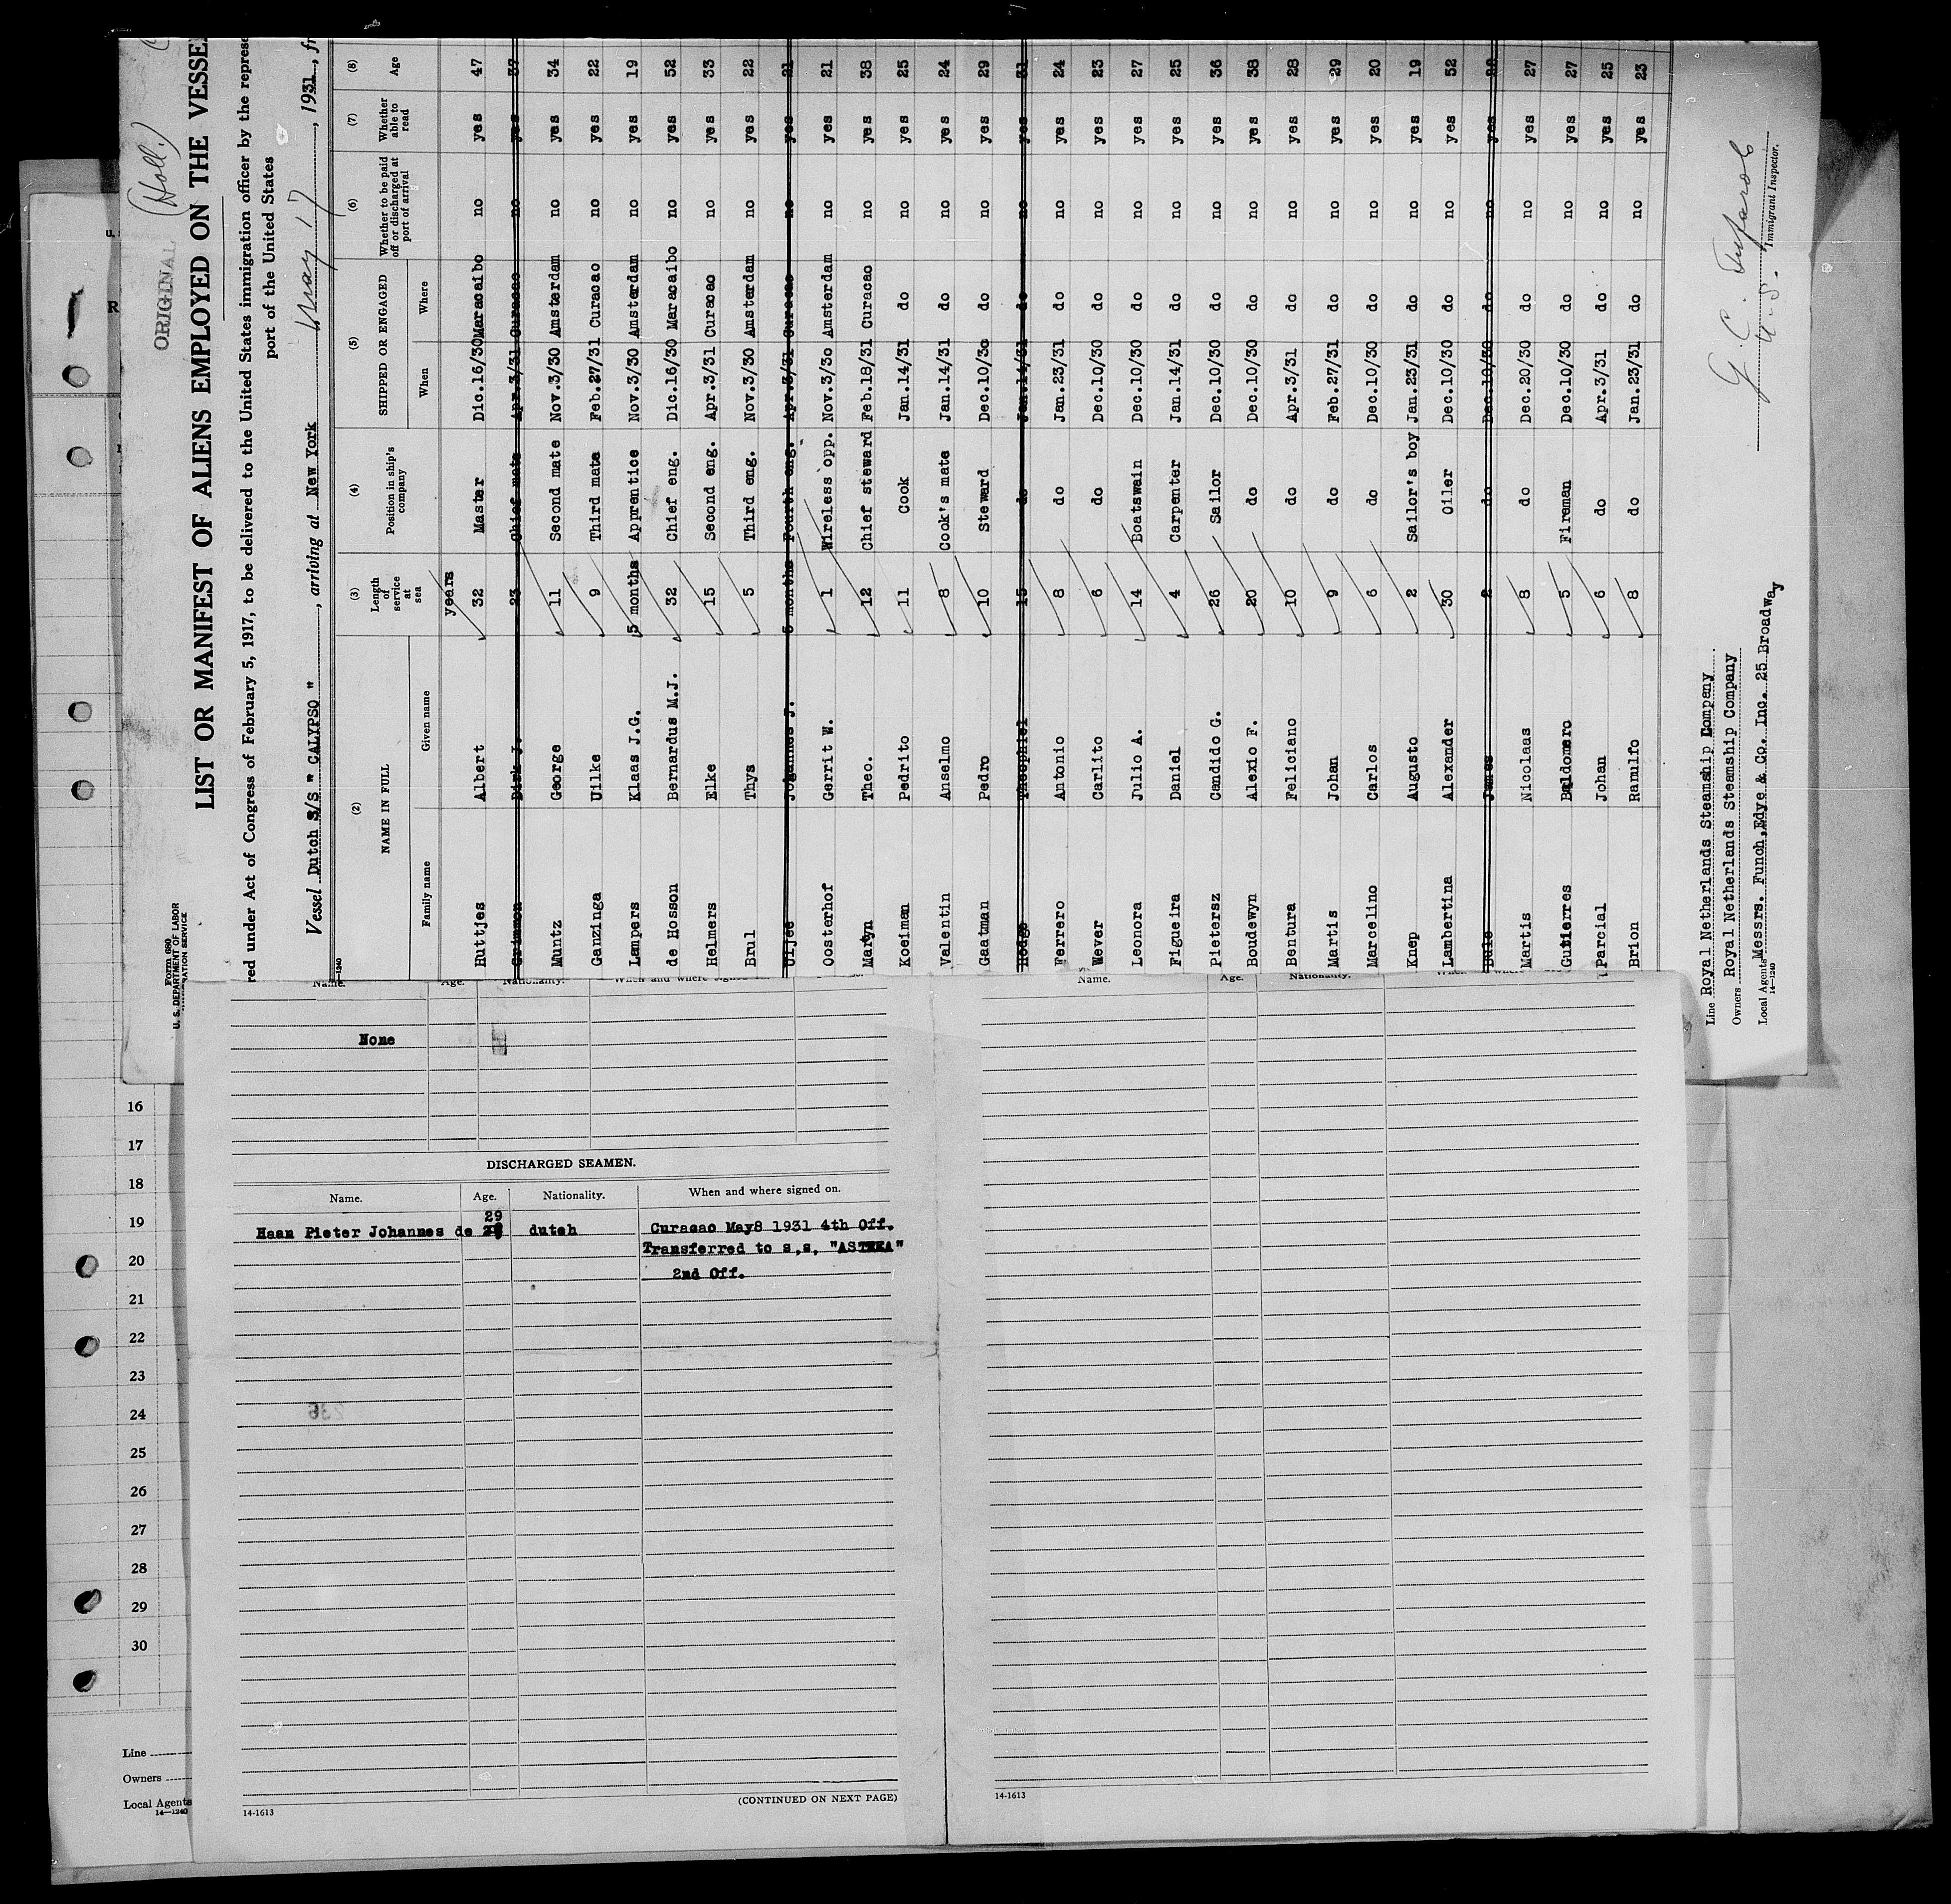 Form 680
U. S. DEPARTMENT OF LABOR
IMMIGRATION SERVICE
ORIGINAL
(Holl.)
LIST OR MANIFEST OF ALIENS EMPLOYED ON THE VESSE
red under Act of Congress of February 5, 1917, to be delivered to the United States immigration officer by the represe
port of the United States
Vessel Dutch S/S " CALYPSO " , arriving at New York May 17 , 1931 , fr
(2) (3) (4) (5) (6) (7) (8)
NAME IN FULL Length of service at sea Position in ship's company SHIPPED OR ENGAGED Whether to be paid off or discharged at port of arrival Whether able to read Age
Family name Given name When Where
years
Huttjes Albert 32 Master Dic.16/30 Maracaibo no yes 47
Grimmon Dirk J. 23 Chief mate Apr.3/31 Curacao no yes 37
Muntz George 11 Second mate Nov.3/30 Amsterdam no yes 34
Ganzinga Uilke 9 Third mate Feb.27/31 Curacao no yes 22
Lampers Klaas J.G. 5 months Apprentice Nov.3/30 Amsterdam no yes 19
de Hosson Bernardus M.J. 32 Chief eng. Dic.16/30 Maracaibo no yes 52
Helmers Elke 15 Second eng. Apr.3/31 Curacao no yes 33
Brul Thys 5 Third eng. Nov.3/30 Amsterdam no yes 22
Uljee Johannes J. 6 months Fourth eng. Apr.3/31 Curacao no yes 21
Oosterhof Gerrit W. 1 Wireless opp. Nov.3/30 Amsterdam no yes 21
Martyn Theo. 12 Chief steward Feb.18/31 Curacao no yes 38
Koeiman Pedrito 11 Cook Jan.14/31 do no yes 25
Valentin Anselmo 8 Cook's mate Jan.14/31 do no yes 24
Gaatman Pedro 10 Steward Dec.10/30 do no yes 29
Hodge Theophiel 15 do Jan.14/31 do no yes 31
Ferrero Antonio 8 do Jan.23/31 do no yes 24
Wever Carlito 6 do Dec.10/30 do no yes 23
Leonora Julio A. 14 Boatswain Dec.10/30 do no yes 27
Figueira Daniel 4 Carpenter Jan.14/31 do no yes 25
Pietersz Candido G. 26 Sailor Dec.10/30 do no yes 36
Boudewyn Alexio F. 20 do Dec.10/30 do no yes 38
Bentura Feliciano 10 do Apr.3/31 do no yes 28
Martis Johan 9 do Feb.27/31 do no yes 29
Marcelino Carlos 6 do Dec.10/30 do no yes 20
Knep Augusto 2 Sailor's boy Jan.23/31 do no yes 19
Lambertina Alexander 30 Oiler Dec.10/30 do no yes 52
James 2 do Dec.10/30 do no yes 28
Martis Nicolaas 8 do Dec.20/30 do no yes 27
Gutierres Baldomero 5 Fireman Dec.10/30 do no yes 27
Parcial Johan 6 do Apr.3/31 do no yes 25
Brion Ramulfo 8 do Jan.23/31 do no yes 23
Line Royal Netherlands Steamship Company
Owners Royal Netherlands Steamship Company
Local Agents Messrs. Funch,Edye & Co. Inc. 25 Broadway
14—1240
Immigrant Inspector.
Name. Age. Nationality. When and where signed on.
None
DISCHARGED SEAMEN.
Name. Age. Nationality. When and where signed on.
29
Haan Pieter Johannes de dutch Curacao May8 1931 4th Off.
Transferred to s,s, "ASTREA"
2nd Off.
(CONTINUED ON NEXT PAGE)
14-1613
Name. Age. Nationality.
14-1613
16
17
18
19
20
21
22
23
24
25
26
27
28
29
30
Line
Owners
Local Agents
14—1240